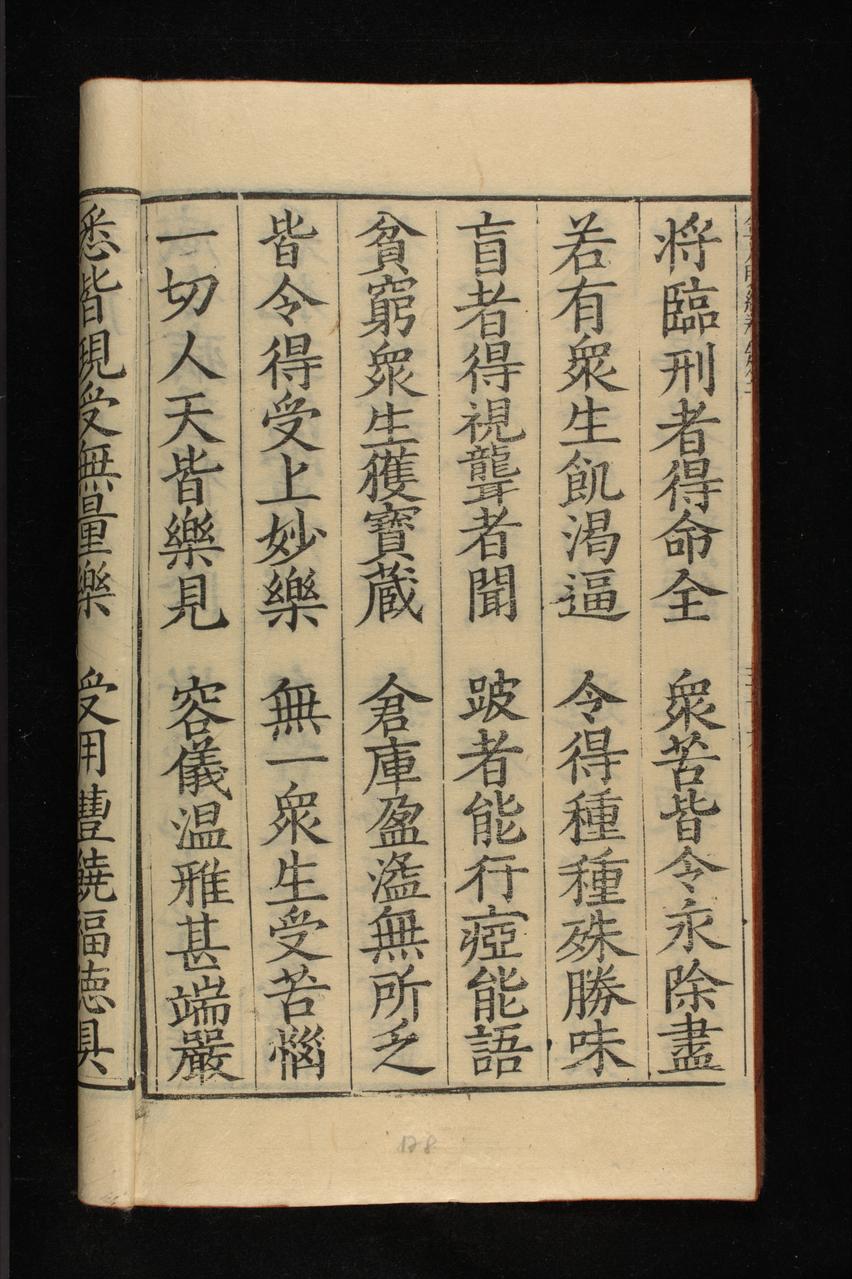 將臨刑者得命全　眾苦皆令永除盡
若有眾生飢渴逼　令得種種殊勝味
盲者得視聾者聞　跛者能行瘂能語
貧窮眾生獲寶藏　倉庫盈溢無所乏
皆令得受上妙樂　無一眾生受苦惱
一切人天皆樂見　容儀温雅甚端嚴
悉皆現受無量樂　受用豐饒福德具
128